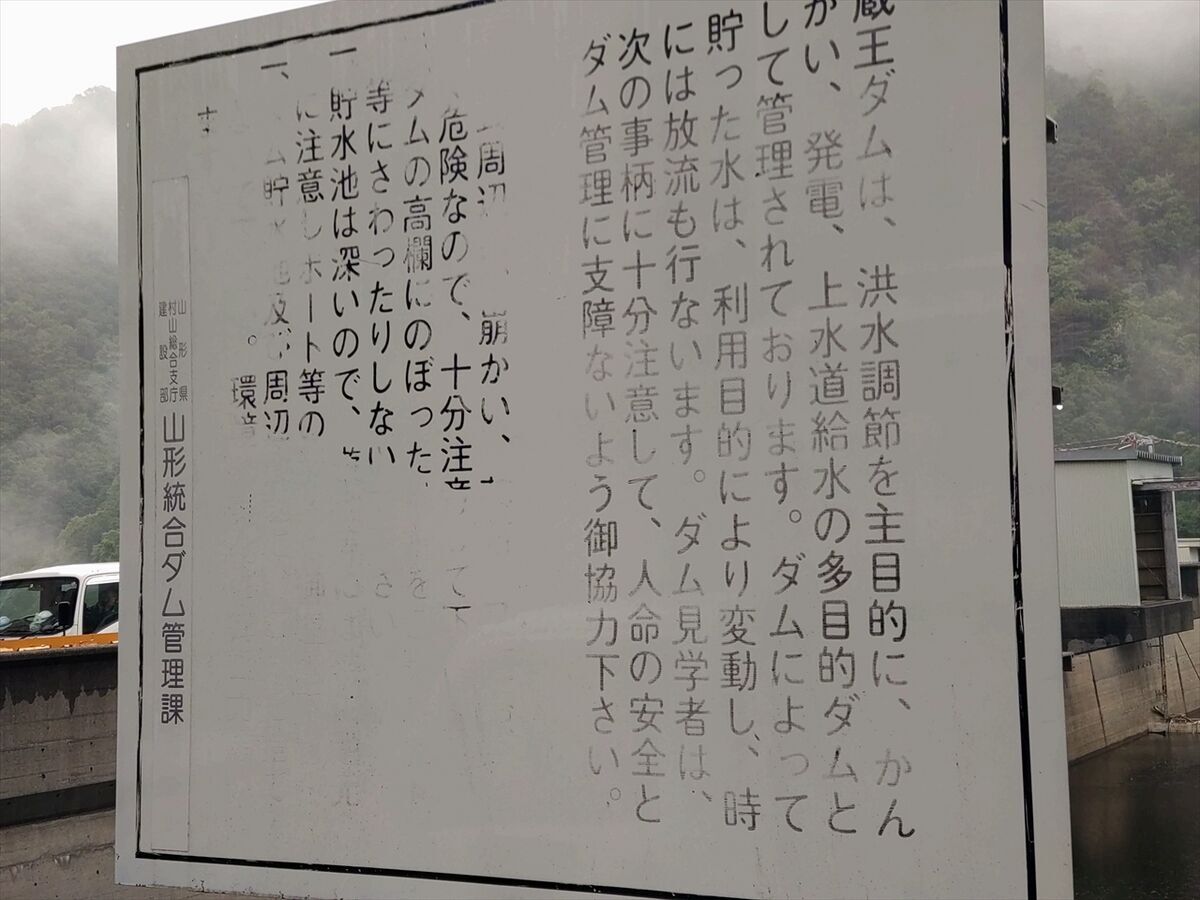 蔵王ダムは、洪水調節を主目的に、かん
がい、発電、上水道給水の多目的ダムと
して管理されております。ダムによって
貯った水は、利用目的により変動し、時
には放流も行ないます。ダム見学者は、
次の事柄に十分注意して、人命の安全と
ダム管理に支障ないよう御協力下さい。
周辺 崩かい、
危険なので、十分注意 て
ダムの高欄にのぼった を
等にさわったりしない さ
一、貯水池は深いので、
に注意しボート等の
一、 ム貯水池及び周辺
。環境
山形県
村山総合支庁
建設部
山形統合ダム管理課